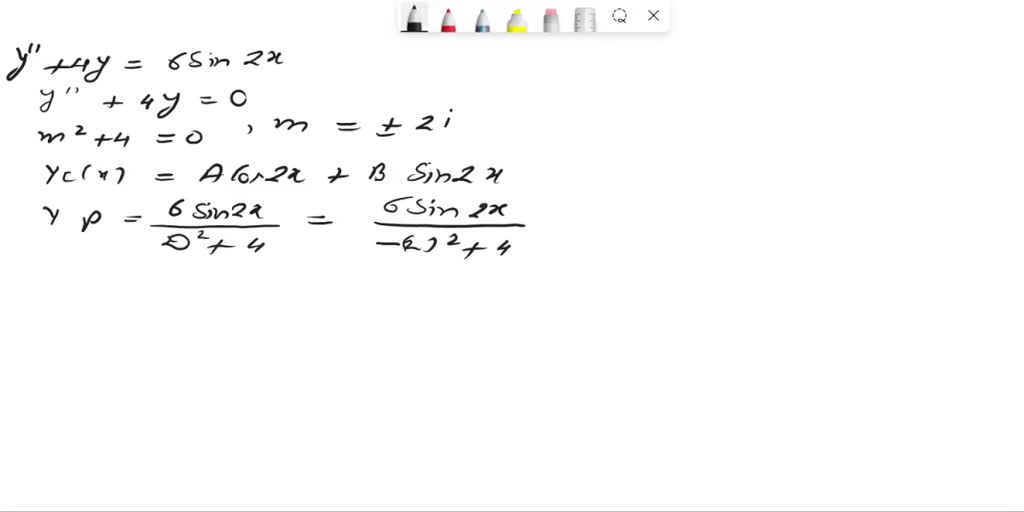 y'' + 4y = 6 Sin 2x
y'' + 4y = 0
m² + 4 = 0 , m = ± 2i
Yc(x) = A Cos 2x + B Sin 2x
Yp = 6 Sin 2x / D² + 4 = 6 Sin 2x / -(2)² + 4